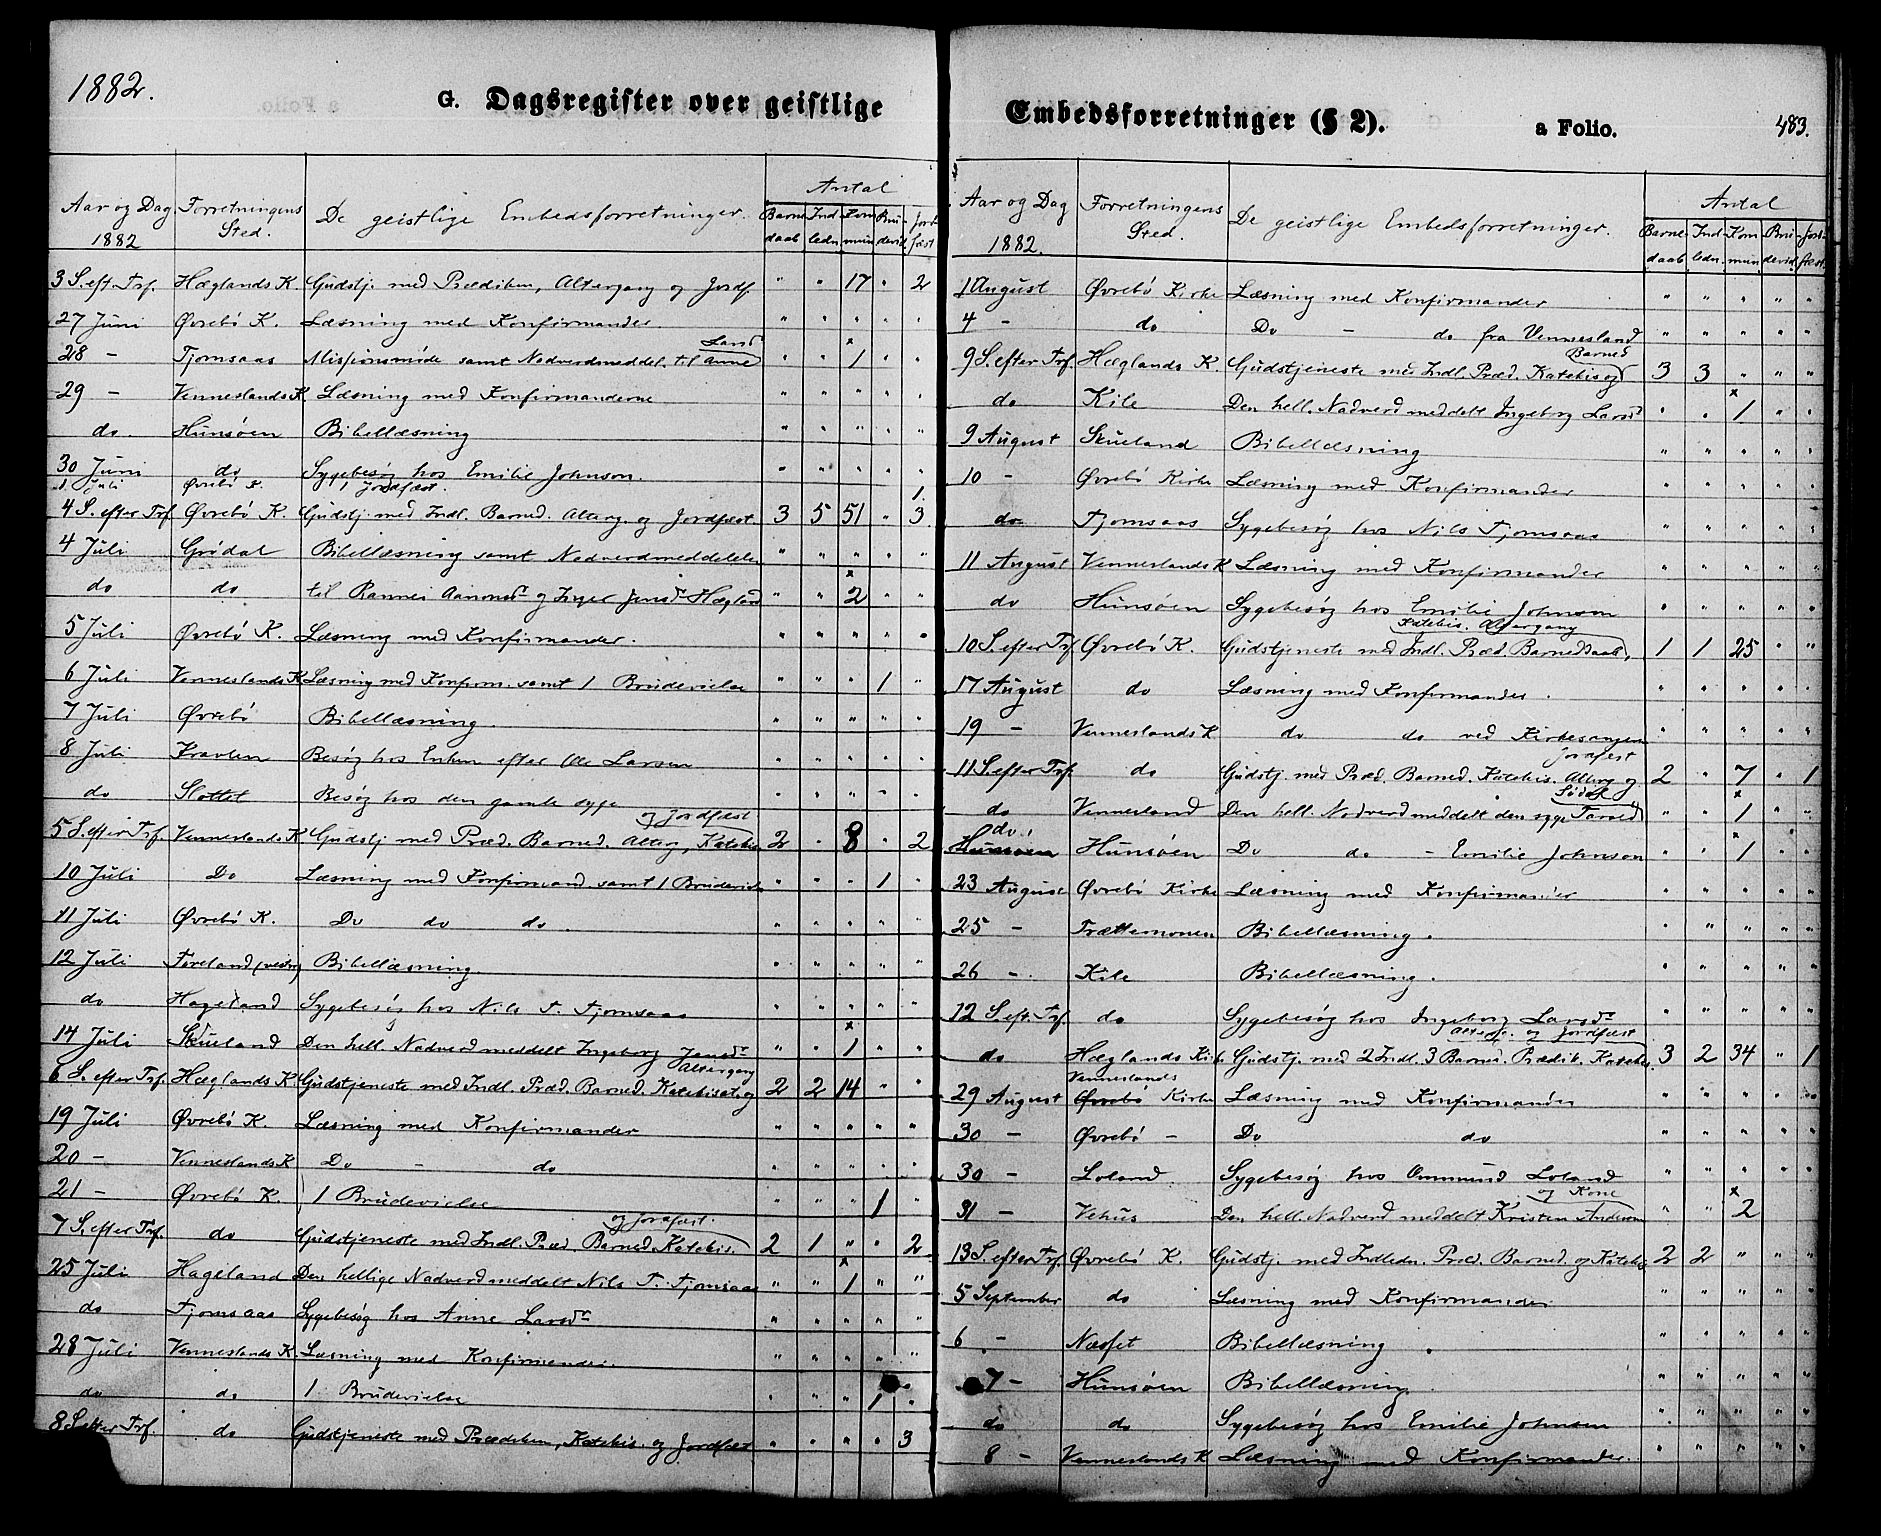 1882.
G. Dagsregister over geistlige
Aar og Dag 1882 Forretningens Sted. De geistlige Embedsforretninger. Antal
Barne daab Ind ledn. Kom mun Bru devid. Jord fæst
3 S. eft. Trf. Hæglands K. Gudstj. med Prædiken, Altergang og Jordf. " " 17 " 2
27 Juni Øvrebö K. Læsning med Konfirmander. " " " " "
28 - Tjomsaas Missionsmöde samt Nadverdmeddel. til Anne Larsd " " x 1 " "
29 - Venneslands K. Læsning med Konfirmanderne " " " " "
do. Hunsöen Bibellæsning " " " " "
30 Juni do Sygebesög hos Emilie Johnson. " " " " "
1 Juli Øvrebö K. 1 Jordfæst. 1
4 S. efter Trf Øvrebö K. Gudstj. med Indl. Barned. Alterg. og Jordfæst. 3 5 51 " 3
4 Juli Grödal Bibellæsning samt Nadverdmeddelelse " " " " "
do do til Rannei Aanonsd og Inger Jensd Hægland " " x 2 " "
5 Juli Øvrebö K. Læsning med Konfirmander. " " " " "
6 Juli Venneslands K. Læsning med Konfirm. samt 1 Brudevielse " " " 1 "
7 Juli Øvrebö Bibellæsning. " " " " "
8 Juli Kravlen Besög hos Enken efter Ole Larsen " " " " "
do Slottet Besög hos den gamle syge " " " " "
5 S. efter Trf. Venneslands K. Gudstj med Præd. Barned. Alterg, Katekis. og Jordfæst 2 " 8 " 2
10 Juli Do Læsning med Konfirmand samt 1 Brudevielse " " " 1 "
11 Juli Øvrebö K. Do do do. " " " " "
12 Juli Föreland, Bibellæsning. " " " " "
do Hageland Sygebesög hos Nils T. Tjomsaas " " " " "
14 Juli Skueland Den hell. Nadverd meddelt Ingeborg Jensd " " x 1 " "
6 S. efter Trf. Hæglands K. Gudstjeneste med Indl. Præd. Barned. Katekisat. og Altergang 2 2 14 " "
19 Juli Øvrebö K. Læsning med Konfirmander " " " " "
20 - Venneslands K Do - do " " " " "
21 - Øvrebö K. 1 Brudevielse " " " 1 "
7 S. efter Trf. do Gudstjeneste med Indl. Præd. Barned. Katekis. og Jordfæst. 2 1 " " 2
25 Juli Hageland Den hellige Nadverd meddelt Nils T. Tjomsaas " " x 1 " "
do Tjomsaas Sygebesög hos Anne Larsd " " " " "
28 Juli Venneslands K. Læsning med Konfirmander. " " " " "
do do 1 Brudevielse " " " 1 "
8 S. efter Trf. do Gudstjeneste med Prædiken, Katekis. og Jordfæst " " " " 3
Embedsforretninger (§ 2).
a Folio.
483.
Aar og Dag 1882. Forretningens Sted. De geistlige Embedsforretninger. Antal
Barne daab Ind ledn. Kom mun Bru devid. Jord fæst.
1 August Øvrebö Kirke Læsning med Konfirmander " " " " "
4 - do Do - do fra Vennesland " " " " "
9 S. efter Trf. Hæglands K Gudstjeneste med Indl. Præd. Katekis og Barned 3 3 " " "
do Kile Den hell. Nadverd meddelt Ingeborg Larsd " " x 1 " "
9 August Skueland Bibellæsning " " " " "
10 - Øvrebö Kirke Læsning med Konfirmander " " " " "
do Tjomsaas Sygebesög hos Nils Tjomsaas " " " " "
11 August Venneslands K Læsning med Konfirmander " " " " "
do Hunsöen Sygebesög hos Emilie Johnson " " " " "
10 S. efter Trf Øvrebö K. Gudstjeneste med Indl. Præd. Barnedaab, Katekis. Altergang 1 1 25 " "
17 August do Læsning med Konfirmander. " " " " "
19 - Venneslands K do do ved Kirkesangeren " " " " "
11 S. efter Trf. do Gudstj. med Præd. Barned. Katekis. Alterg og Jordfest 2 " 7 " 1
do Vennesland Den hell. Nadverd meddelt den syge Tarald Södal " " x 1 " "
do. Hunsöen Do do - Emilie Johnson " " x 1 " "
23 August Øvrebö Kirke Læsning med Konfirmander " " " " "
25 - Trættemonen Bibellæsning. " " " " "
26 - Kile Bibellæsning. " " " " "
12 S. eft. Trf. do Sygebesög hos Ingeborg Larsd " " " " "
do Hæglands Kirk. Gudstj. med 2 Indl. 3 Barned. Prædik. Katekis. Alterg. og Jordfæst 3 2 34 " 1
29 August Venneslands Kirke Læsning med Konfirmander " " " " "
30 - Øvrebö - Do do " " " " "
30 - Loland Sygebesög hos Ommund Loland " " " " "
31 - Vehus Den hell. Nadverd meddelt Kristen Andersen og Kone " " x 2
13 S. efter Trf. Øvrebö K. Gudstj. med Indledn. Præd. Barned. og Katekis. 2 2 " " "
5 September do Læsning med Konfirmander. " " " " "
6 - Næsset Bibellæsning. " " " " "
7 - Hunsöen Bibellæsning. " " " " "
do do Sygebesög hos Emilie Johnsen " " " " "
8 - Venneslands K Læsning med Konfirmander. " " " " "